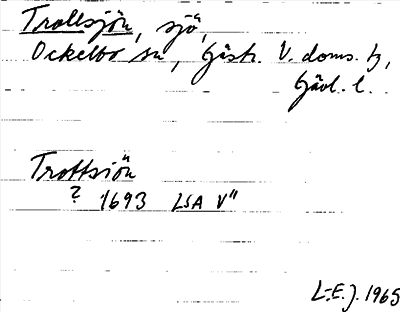 Trollsjön, sjö,
Ockelbo sn, Gästr. V. doms. tg,
Gävl. l.
Trottsiön
? 1693 LSA V"
L-E. J. 1965